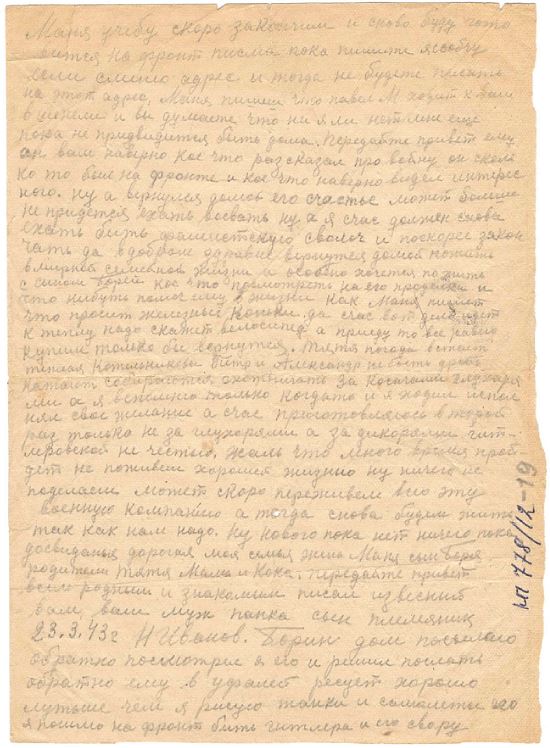 Маня учебу скоро закончим и снова буду гото
вится на фронт писма пока пишите я сообчу
если смению адрес и тогда не будете писать
на этот адрес, Маня пишеш что павел М ходит к вам
в шенели и вы думаете что ни я ли нет мне еще
пока не придвидится быть дома. Передайте привет ему
он вам наверно кое что рассказал про войну он сколь
ко то был на фронте и кое что наверно видел интерес
ного. ну а вернулся домой его счастье может больше
не придется ехать воевать ну а я счас должен снова
ехать бить фашистскую сволоч и поскорее закон
чать да в добром здравие вернутся домой пожить
в мирной семейной жизни а особо хочется пожить
с сыном Борей кое что посмотреть на его проделки и
что нибуть помоч ему в жизни как Маня пишет
что просит железный коньки. да счас вот дело идет
к теплу надо скажет велосипед а приеду то все равно
купим только бы вернутся. Тятя погода встает
теплая Котельниковы Петр и Александр
собираются охотничать за косачами глухаря
ми а я вспомню только когдато и я ходил испол
нял свое желание а счас приготовляюсь в второй
раз только не за глухорями а за дикорями гит-
леровской не честью. жаль что много время прой
дет не поживеш хорошей жизнию ну ничего не
поделаеш может скоро переживем всю эту
военную компанию а тогда снова будем жить
так как нам надо. Ну нового пока нет ничего пока
досвиданья дорогая моя семья жена Маня сын Боря
родители тятя Мама и Кока. Передайте привет
всем родным и знакомым писал извесний
вам, ваш муж папка сын племяник
23.3.43г Н Иванов. Борин дом посылаю
обратно посмотрел я его и решил послать
обратно ему в удалет рисует хорошо
лутьше чем я рисую танки и самолеты его
я пошлю на фронт бить гитлера и его свору
кп 778/12-19